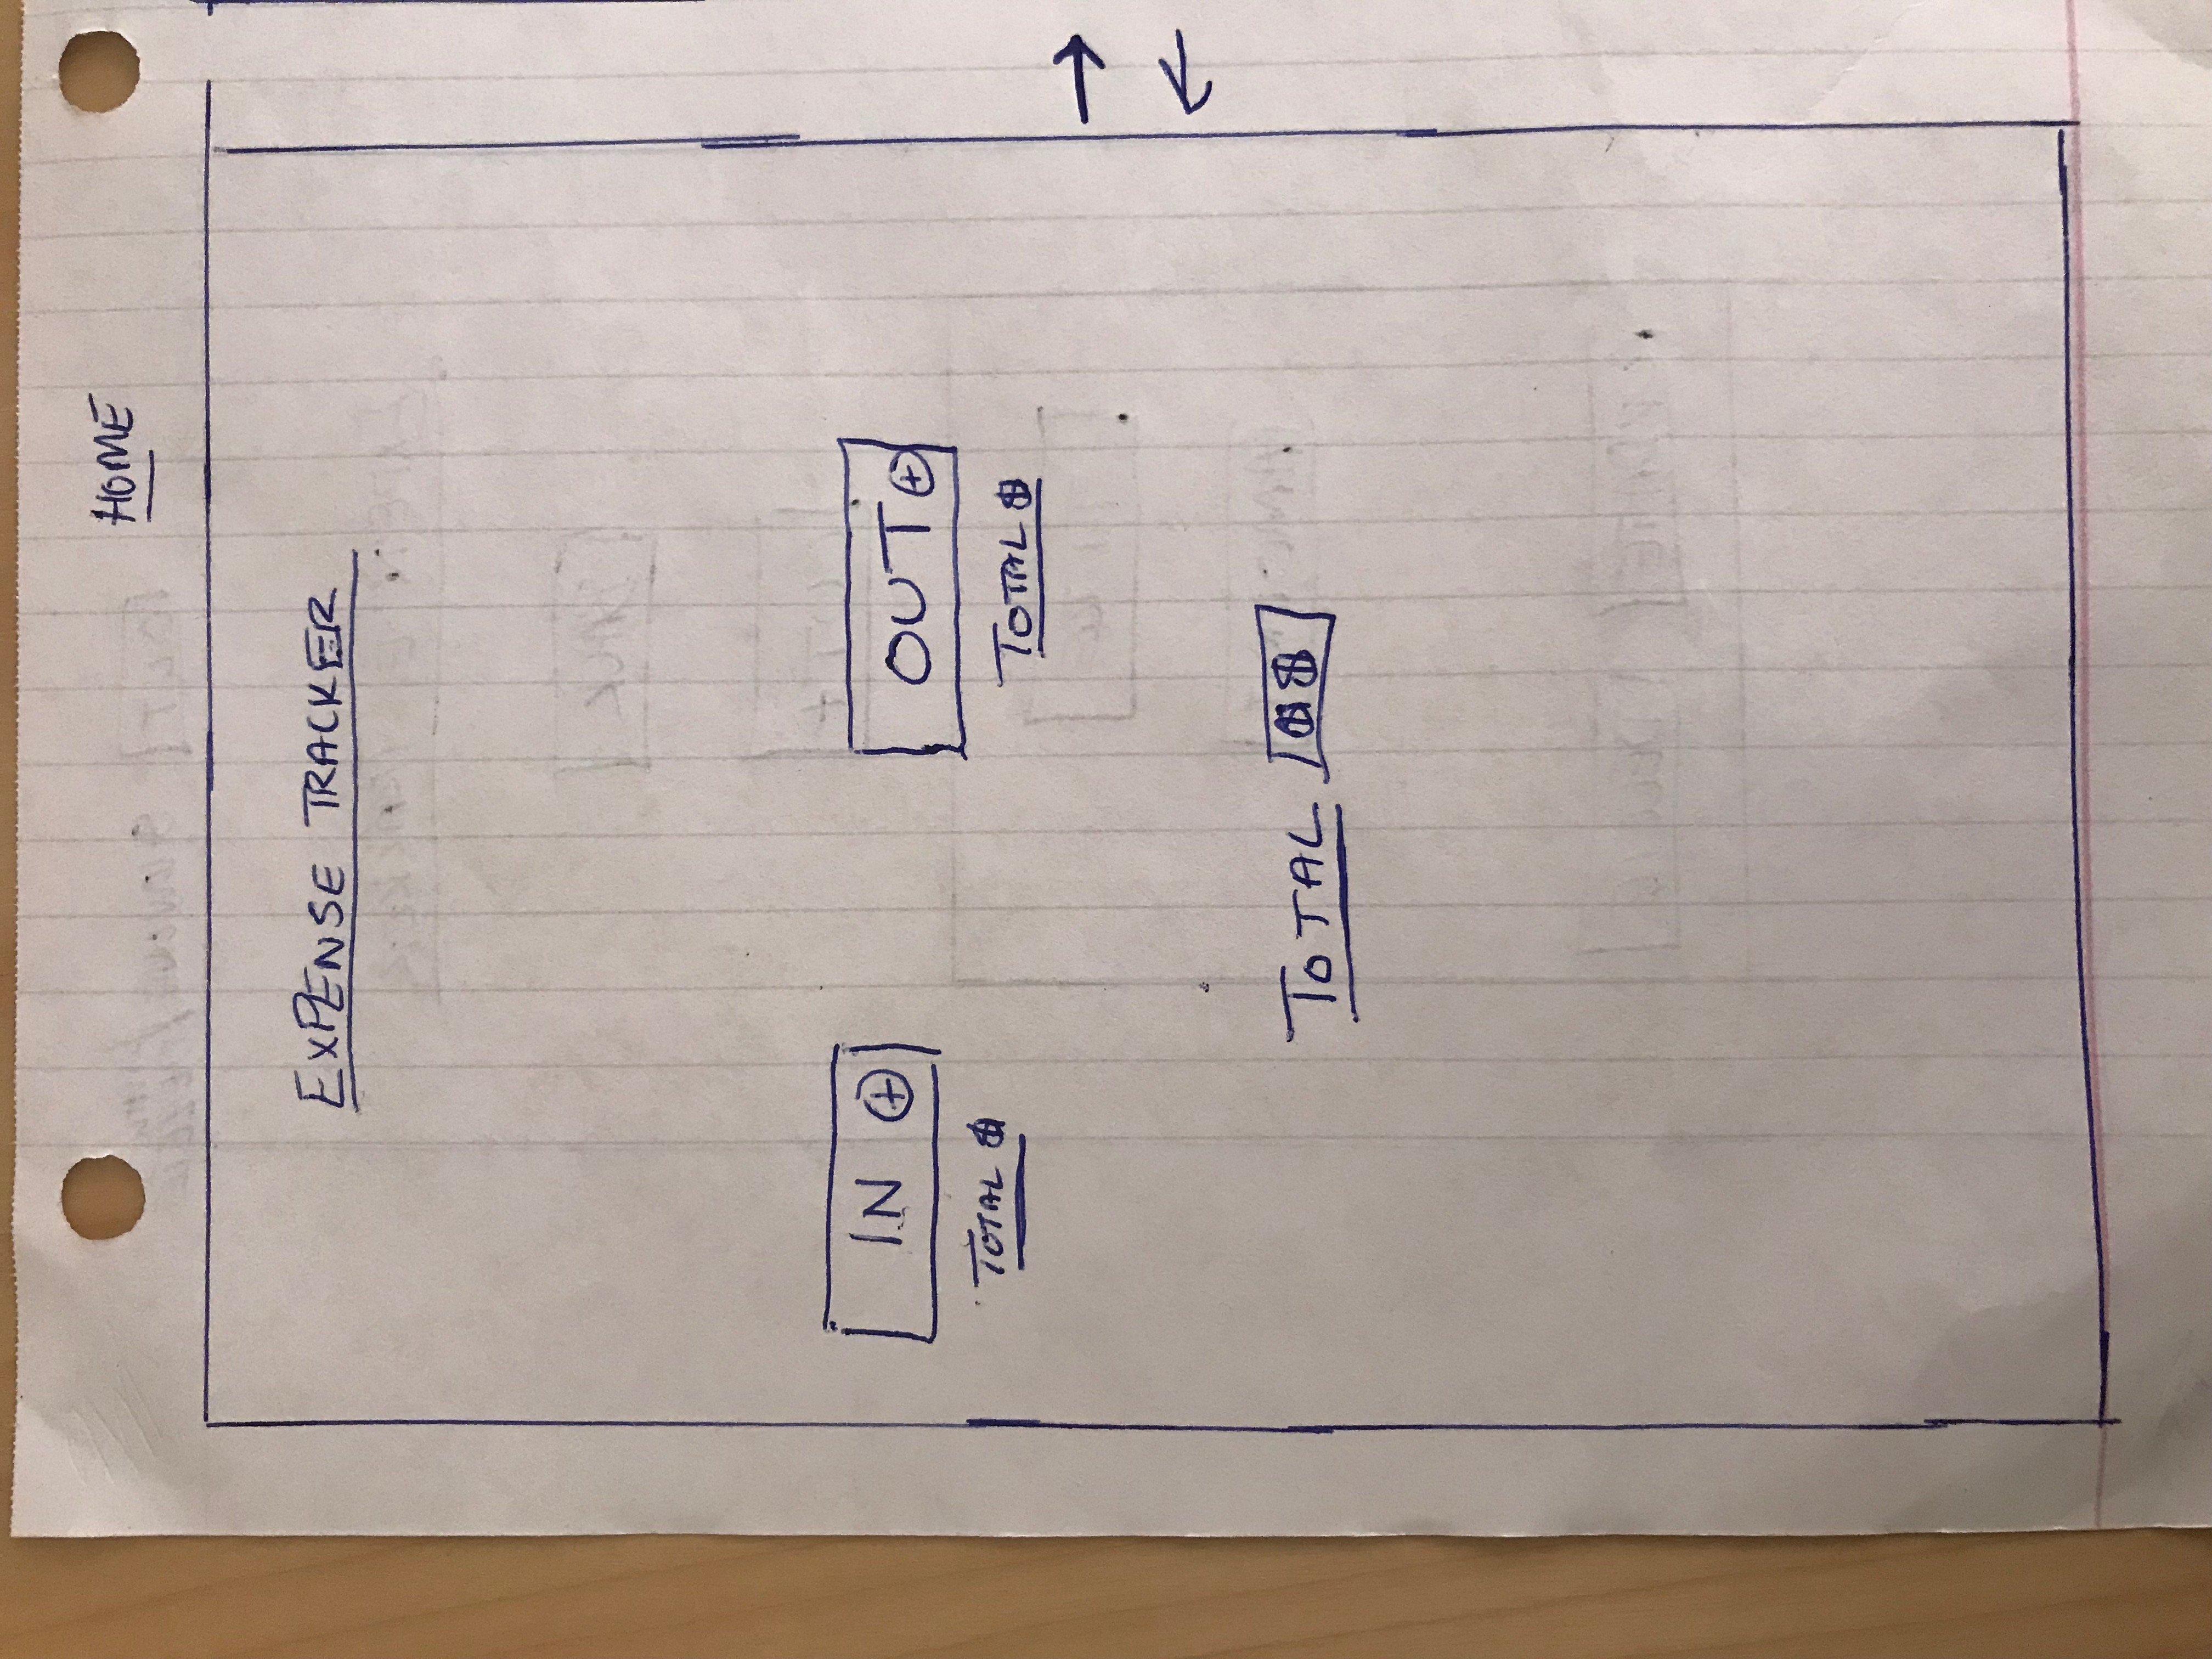 HOME
EXPENSE TRACKER
IN +
OUT +
TOTAL $
TOTAL $
TOTAL $$